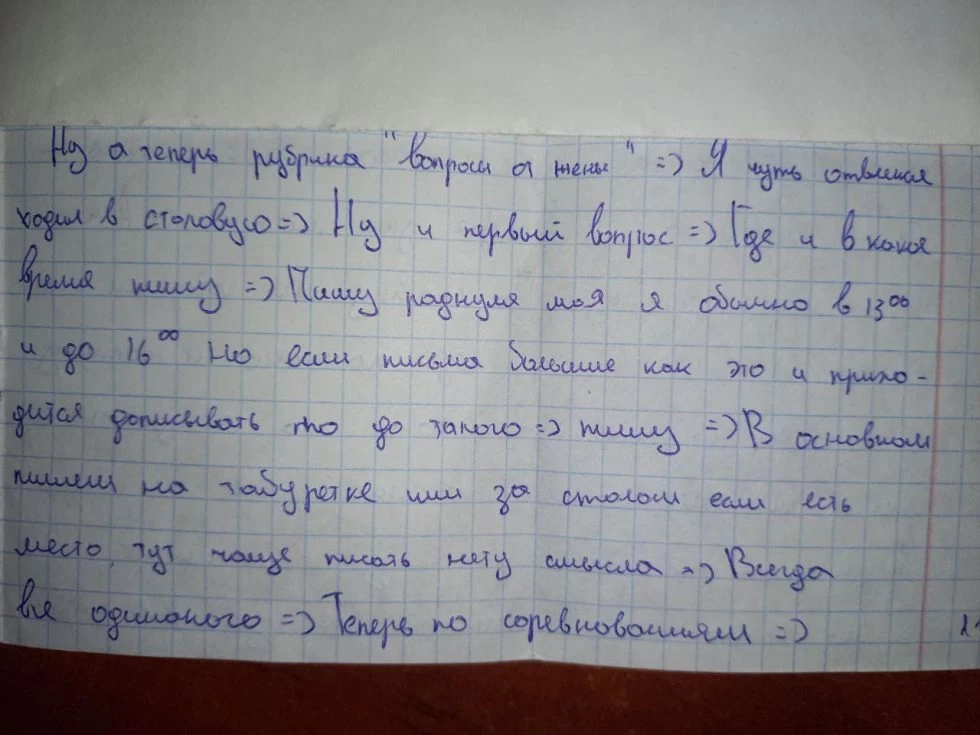 Ну а теперь рубрика "вопросы от жены" => Я чуть отвлёкся
ходил в столовую => Ну и первый вопрос => Где и в какое
время пишу => Пишу роднуля моя я обычно в 13⁰⁰
и до 16⁰⁰ Но если письма большие как это и прихо-
дится дописывать то до такого => пишу => В основном
пишем на табуретке или за столом если есть
место, тут чаще писать нету смысла => Всегда
все одинаково => Теперь по соревнованиям =>